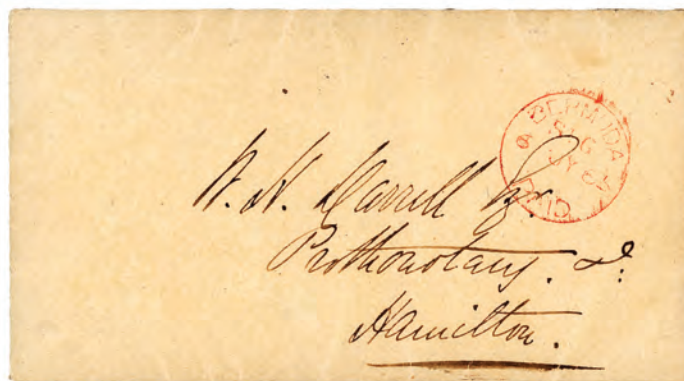 BERMUDA
PAID
W. H. Darrell Esq
Prothonotary. &:
Hamilton.